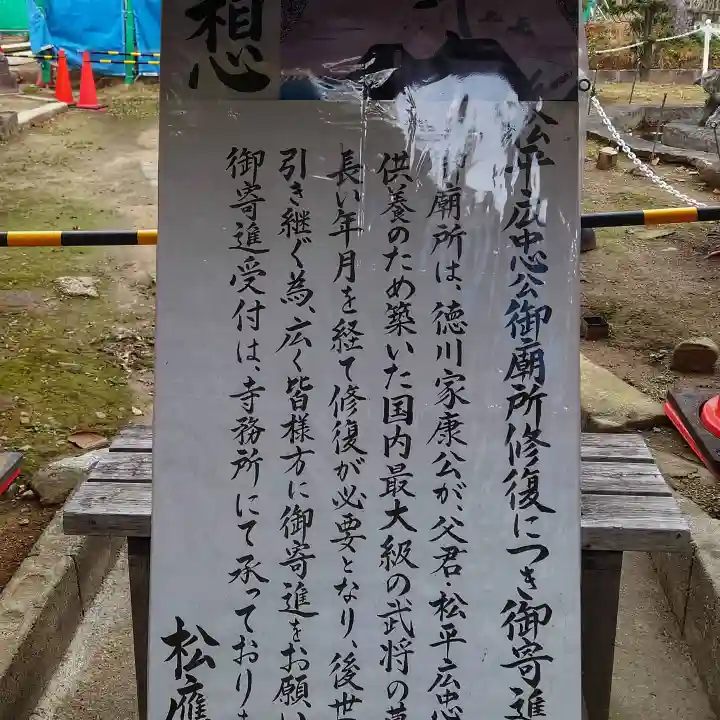 想
松平広忠公御廟所修復につき御寄進
廟所は、徳川家康公が、父君・松平広忠
供養のため築いた国内最大級の武将の
長い年月を経て修復が必要となり、後世
引き継ぐ為、広く皆様方に御寄進をお願い
御寄進受付は、寺務所にて承っており
松應